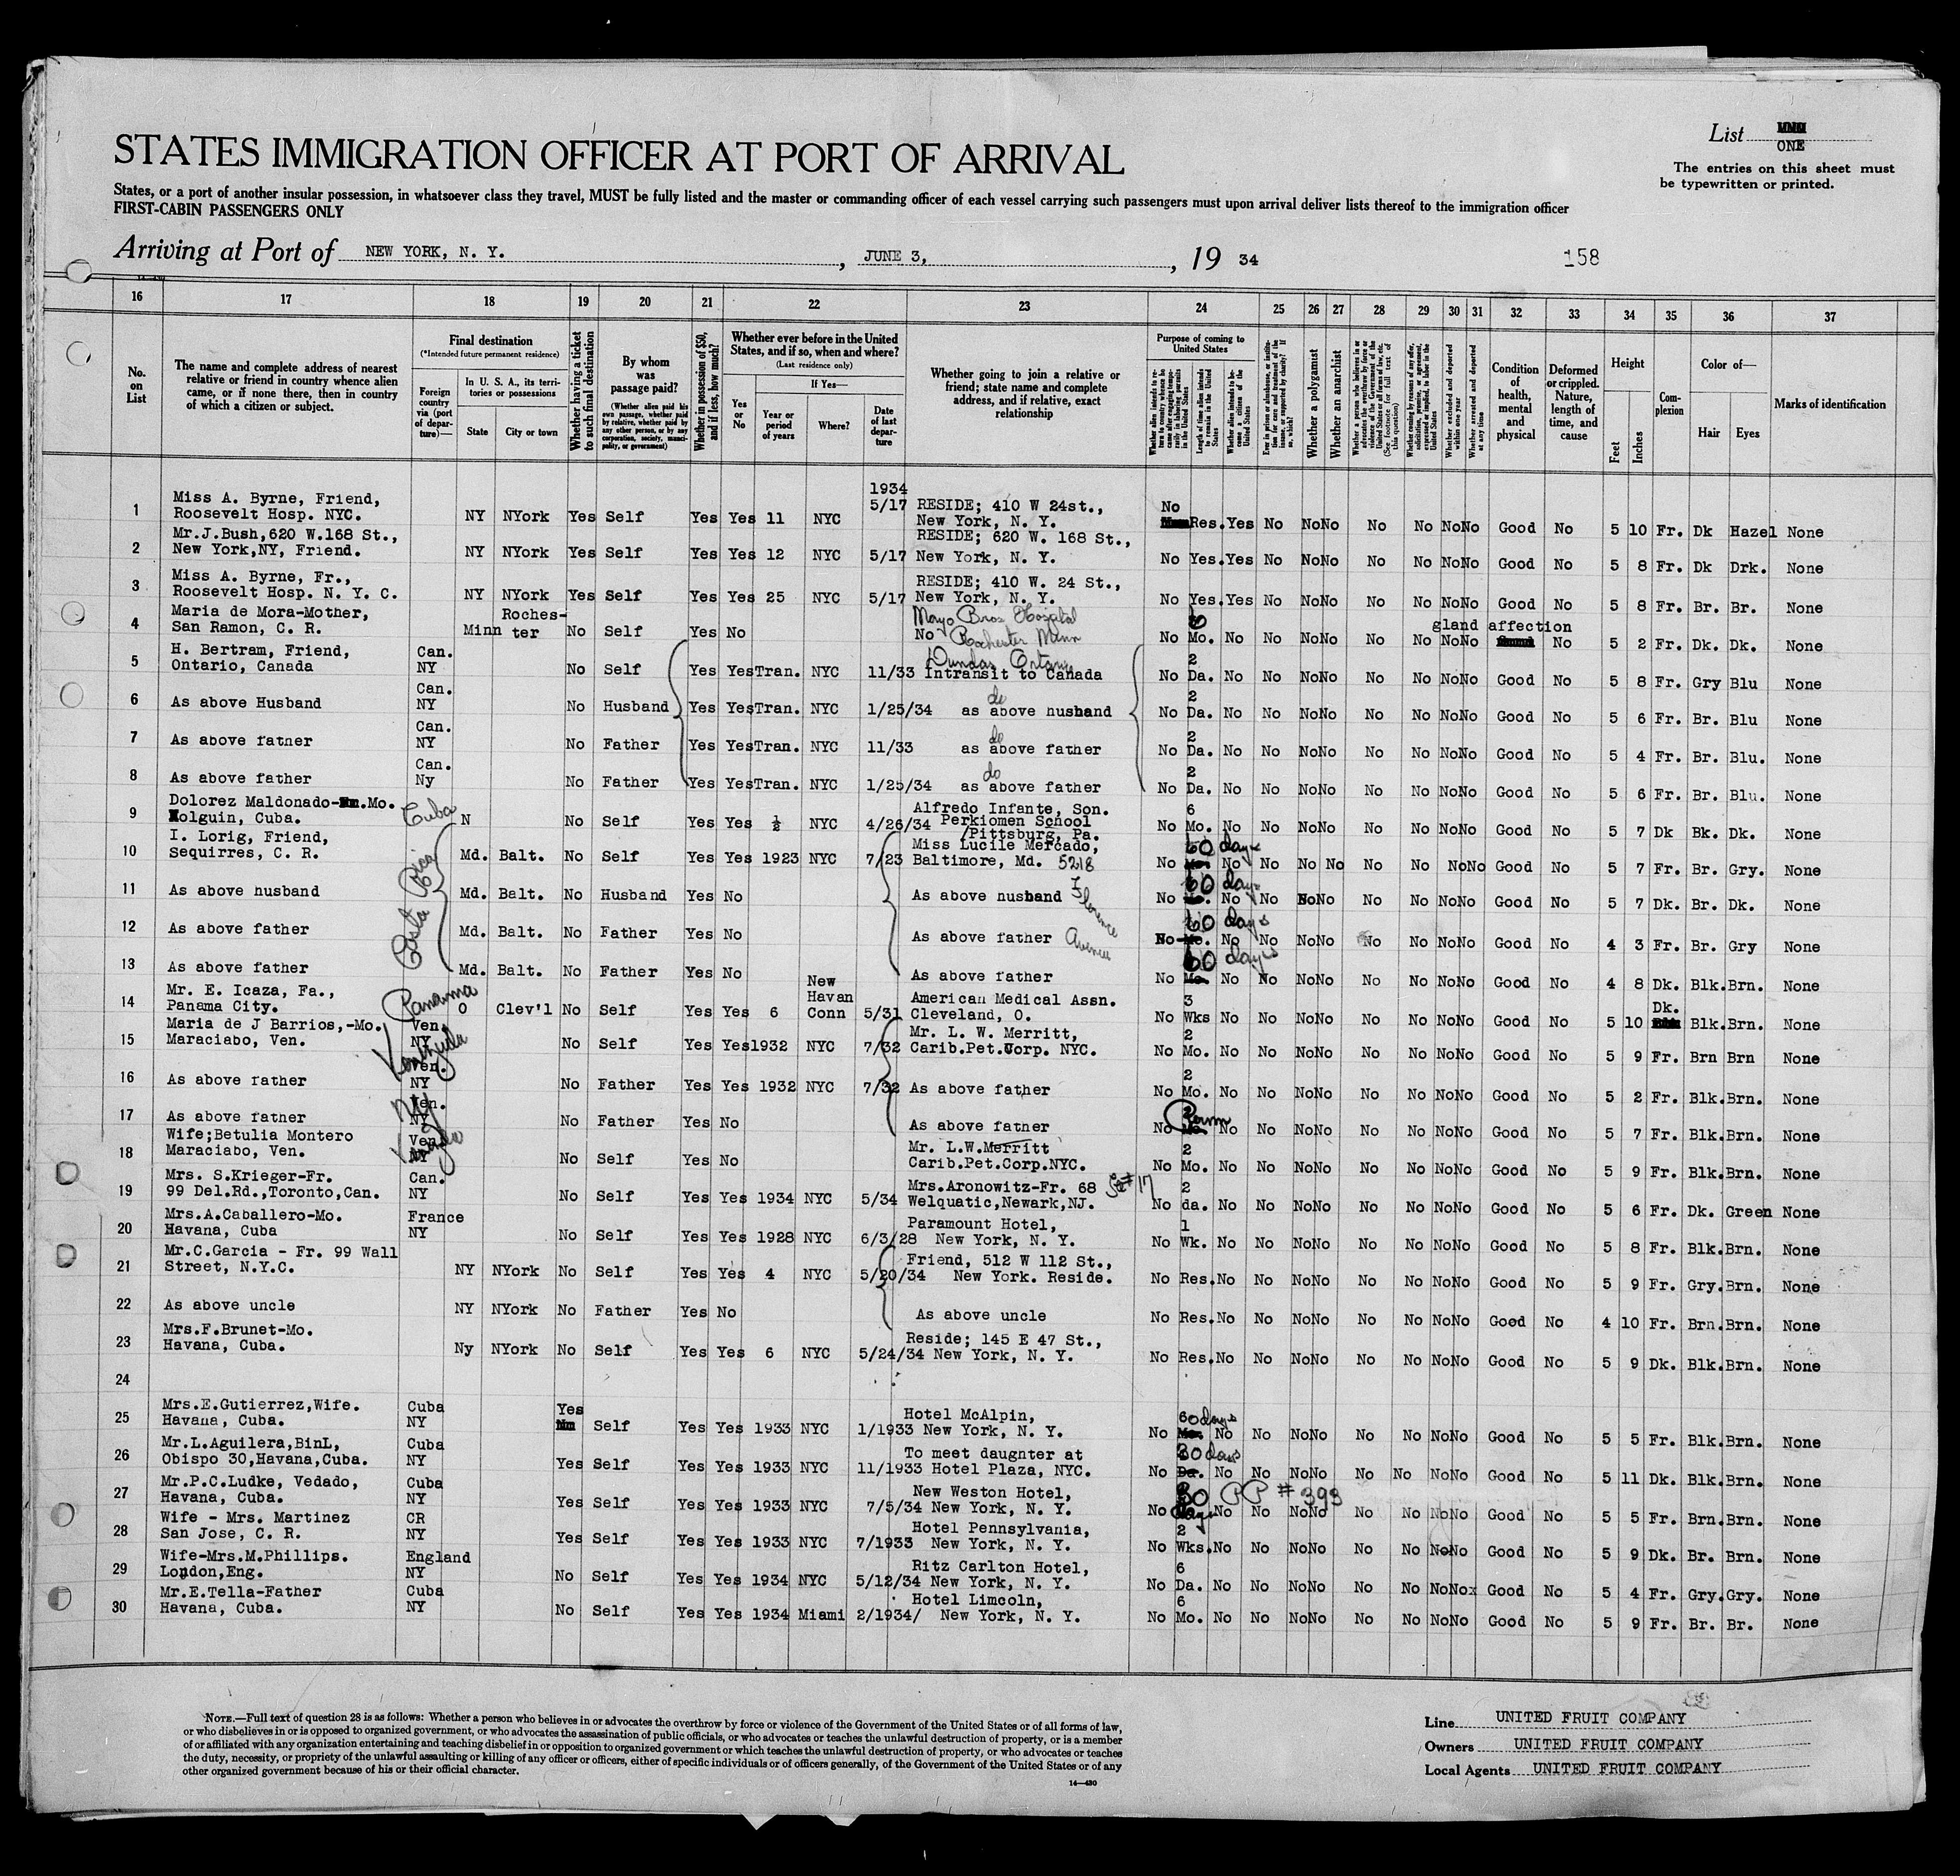 List ONE
The entries on this sheet must
be typewritten or printed.
STATES IMMIGRATION OFFICER AT PORT OF ARRIVAL
States, or a port of another insular possession, in whatsoever class they travel, MUST be fully listed and the master or commanding officer of each vessel carrying such passengers must upon arrival deliver lists thereof to the immigration officer
FIRST-CABIN PASSENGERS ONLY
Arriving at Port of NEW YORK, N. Y. , JUNE 3, , 19 34 158
16 17 18 19 20 21 22 23 24 25 26 27 28 29 30 31 32 33 34 35 36 37
No. on List
The name and complete address of nearest relative or friend in country whence alien came, or if none there, then in country of which a citizen or subject.
Final destination
(*Intended future permanent residence)
Foreign country via (port of departure)—
In U. S. A., its territories or possessions
State City or town
Whether having a ticket to such final destination
By whom was passage paid?
(Whether alien paid his own passage, whether paid by relative, whether paid by any other person, or by any corporation, society, municipality, or government)
Whether in possession of $50, and if less, how much?
Whether ever before in the United States, and if so, when and where?
(Last residence only)
If Yes—
Yes or No
Year or period of years
Where?
Date of last departure
Whether going to join a relative or friend; state name and complete address, and if relative, exact relationship
Purpose of coming to United States
Length of time alien intends to remain in the United States
Whether alien intends to become a citizen of the United States
Whether a polygamist
Whether an anarchist
Whether excluded and deported within one year
Whether arrested and deported at any time
Condition of health, mental and physical
Deformed or crippled. Nature, length of time, and cause
Height
Feet Inches
Complexion
Color of—
Hair Eyes
Marks of identification
1 Miss A. Byrne, Friend, Roosevelt Hosp. NYC. NY NYork Yes Self Yes Yes 11 NYC 1934 5/17 RESIDE; 410 W 24st., New York, N. Y. No Res. Yes No No No No No No No Good No 5 10 Fr. Dk Hazel None
2 Mr.J.Bush,620 W.168 St., New York,NY, Friend. NY NYork Yes Self Yes Yes 12 NYC 5/17 RESIDE; 620 W. 168 St., New York, N. Y. No Yes. Yes No No No No No No No Good No 5 8 Fr. Dk Drk. None
3 Miss A. Byrne, Fr., Roosevelt Hosp. N. Y. C. NY NYork Yes Self Yes Yes 25 NYC 5/17 RESIDE; 410 W. 24 St., New York, N. Y. No Yes. Yes No No No No No No No Good No 5 8 Fr. Br. Br. None
4 Maria de Mora-Mother, San Ramon, C. R. Minn Roches-ter No Self Yes No No Mayo Bros Hospital Rochester Minn No Mo. No No No No No No No No gland affection No 5 2 Fr. Dk. Dk. None
5 H. Bertram, Friend, Ontario, Canada Can. NY No Self Yes Yes Tran. NYC 11/33 Dundas Ontario Intransit to Canada No 2 Da. No No No No No No No No Good No 5 8 Fr. Gry Blu None
6 As above Husband Can. NY No Husband Yes Yes Tran. NYC 1/25/34 do as above husband No 2 Da. No No No No No No No No Good No 5 6 Fr. Br. Blu None
7 As above father Can. NY No Father Yes Yes Tran. NYC 11/33 do as above father No 2 Da. No No No No No No No No Good No 5 4 Fr. Br. Blu. None
8 As above father Can. Ny No Father Yes Yes Tran. NYC 1/25/34 do as above father No 2 Da. No No No No No No No No Good No 5 6 Fr. Br. Blu. None
9 Dolorez Maldonado-Mo. Holguin, Cuba. Cuba N No Self Yes Yes ½ NYC 4/26/34 Alfredo Infante, Son. Perkiomen School /Pittsburg, Pa. No 6 Mo. No No No No No No No No Good No 5 7 Dk Bk. Dk. None
10 I. Lorig, Friend, Sequirres, C. R. Costa Rica Md. Balt. No Self Yes Yes 1923 NYC 7/23 Miss Lucile Mercado, Baltimore, Md. 5218 Florence Avenue No 60 days No No No No No No No No Good No 5 7 Fr. Br. Gry. None
11 As above husband Md. Balt. No Husband Yes No As above husband No 60 days No No No No No No No No Good No 5 7 Dk. Br. Dk. None
12 As above father Md. Balt. No Father Yes No As above father No 60 days No No No No No No No No Good No 4 3 Fr. Br. Gry None
13 As above father Md. Balt. No Father Yes No As above father No 60 days No No No No No No No No Good No 4 8 Dk. Blk. Brn. None
14 Mr. E. Icaza, Fa., Panama City. Panama O Clev'l No Self Yes Yes 6 New Havan Conn 5/31 American Medical Assn. Cleveland, O. No 3 Wks No No No No No No No No Good No 5 10 Dk. Blk. Brn. None
15 Maria de J Barrios,-Mo. Maraciabo, Ven. Ven. NY Venezuela No Self Yes Yes 1932 NYC 7/32 Mr. L. W. Merritt, Carib.Pet.Corp. NYC. No 2 Mo. No No No No No No No No Good No 5 9 Fr. Brn Brn None
16 As above father Ven. NY No Father Yes Yes 1932 NYC 7/32 As above father No 2 Mo. No No No No No No No No Good No 5 2 Fr. Blk. Brn. None
17 As above father Ven. NY NY No Father Yes No As above father No Perm No No No No No No No No Good No 5 7 Fr. Blk. Brn. None
18 Wife;Betulia Montero Maraciabo, Ven. Ven. NY No Self Yes No Mr. L.W.Merritt Carib.Pet.Corp.NYC. No 2 Mo. No No No No No No No No Good No 5 9 Fr. Blk. Brn. None
19 Mrs. S.Krieger-Fr. 99 Del.Rd.,Toronto,Can. Can. NY No Self Yes Yes 1934 NYC 5/34 Mrs.Aronowitz-Fr. 68 Welquatic,Newark,NJ. No 2 da. No No No No No No No No Good No 5 6 Fr. Dk. Green None
20 Mrs.A.Caballero-Mo. Havana, Cuba France NY No Self Yes Yes 1928 NYC 6/3/28 Paramount Hotel, New York, N. Y. No 1 Wk. No No No No No No No No Good No 5 8 Fr. Blk. Brn. None
21 Mr.C.Garcia - Fr. 99 Wall Street, N.Y.C. NY NYork No Self Yes Yes 4 NYC 5/20/34 Friend, 512 W 112 St., New York. Reside. No Res. No No No No No No No No Good No 5 9 Fr. Gry. Brn. None
22 As above uncle NY NYork No Father Yes No As above uncle No Res. No No No No No No No No Good No 4 10 Fr. Brn. Brn. None
23 Mrs.F.Brunet-Mo. Havana, Cuba. Ny NYork No Self Yes Yes 6 NYC 5/24/34 Reside; 145 E 47 St., New York, N. Y. No Res. No No No No No No No No Good No 5 9 Dk. Blk. Brn. None
24
25 Mrs.E.Gutierrez,Wife. Havana, Cuba. Cuba NY Yes Self Yes Yes 1933 NYC 1/1933 Hotel McAlpin, New York, N. Y. No 60 days No No No No No No No No Good No 5 5 Fr. Blk. Brn. None
26 Mr.L.Aguilera,BinL, Obispo 30,Havana,Cuba. Cuba NY Yes Self Yes Yes 1933 NYC 11/1933 To meet daughter at Hotel Plaza, NYC. No 30 days No No No No No No No No Good No 5 11 Dk. Blk. Brn. None
27 Mr.P.C.Ludke, Vedado, Havana, Cuba. Cuba NY Yes Self Yes Yes 1933 NYC 7/5/34 New Weston Hotel, New York, N. Y. No 30 days PP # 393 No No No No No No No No Good No 5 5 Fr. Brn. Brn. None
28 Wife - Mrs. Martinez San Jose, C. R. CR NY Yes Self Yes Yes 1933 NYC 7/1933 Hotel Pennsylvania, New York, N. Y. No 2 Wks. No No No No No No No No Good No 5 9 Dk. Br. Brn. None
29 Wife-Mrs.M.Phillips. London,Eng. England NY No Self Yes Yes 1934 NYC 5/12/34 Ritz Carlton Hotel, New York, N. Y. No 6 Da. No No No No No No No No Good No 5 4 Fr. Gry. Gry. None
30 Mr.E.Tella-Father Havana, Cuba. Cuba NY No Self Yes Yes 1934 Miami 2/1934/ Hotel Limcoln, New York, N. Y. No 6 Mo. No No No No No No No No Good No 5 9 Fr. Br. Br. None
NOTE.—Full text of question 28 is as follows: Whether a person who believes in or advocates the overthrow by force or violence of the Government of the United States or of all forms of law,
or who disbelieves in or is opposed to organized government, or who advocates the assassination of public officials, or who advocates or teaches the unlawful destruction of property, or is a member
of or affiliated with any organization entertaining and teaching disbelief in or opposition to organized government or which teaches the unlawful destruction of property, or who advocates or teaches
the duty, necessity, or propriety of the unlawful assaulting or killing of any officer or officers, either of specific individuals or of officers generally, of the Government of the United States or of any
other organized government because of his or their official character.
14—430
Line UNITED FRUIT COMPANY
Owners UNITED FRUIT COMPANY
Local Agents UNITED FRUIT COMPANY